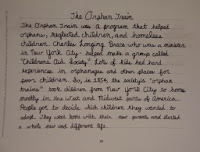 The Orphan Train
The Orphan Train was a program that helped
orphans, neglected children, and homeless
children. Charles Longing Brace who was a minister
in New York City helped make a group called
"Children's Aid Society". Lots of kids had hard
experiences in orphanages and other places for
poor children. So, in 1854, the society's "orphan
trains" took children from New York City to homes
mostly in the west and Midwest parts of America.
People got to decide which children they wanted to
adopt. They went home with their new parents and started
a whole new and different life.